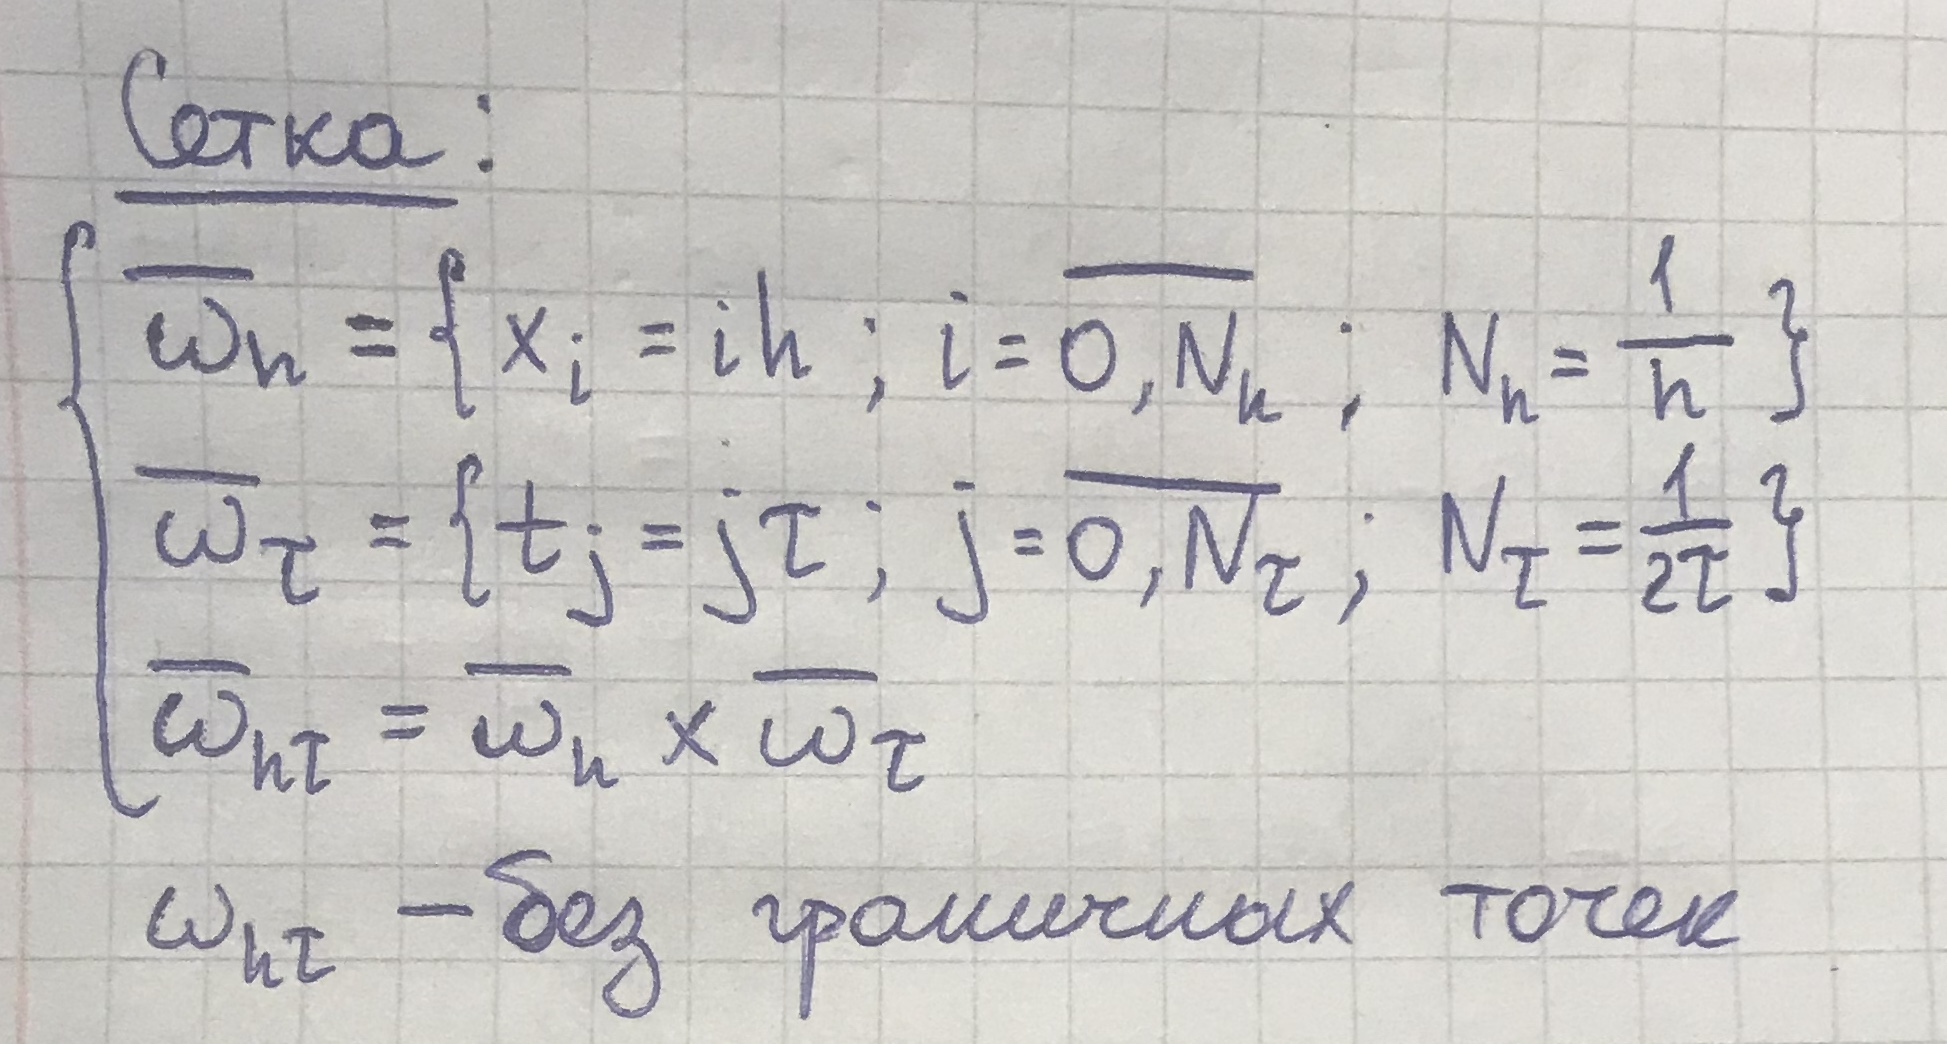 Сетка:
ω̅ₕ = {xᵢ = ih ; i = \overline{0, Nₕ} ; Nₕ = 1/h}
ω̅_τ = {tⱼ = jτ ; j = \overline{0, N_τ} ; N_τ = 1/2τ}
ω̅_hτ = ω̅ₕ × ω̅_τ
ω_hτ – без граничных точек